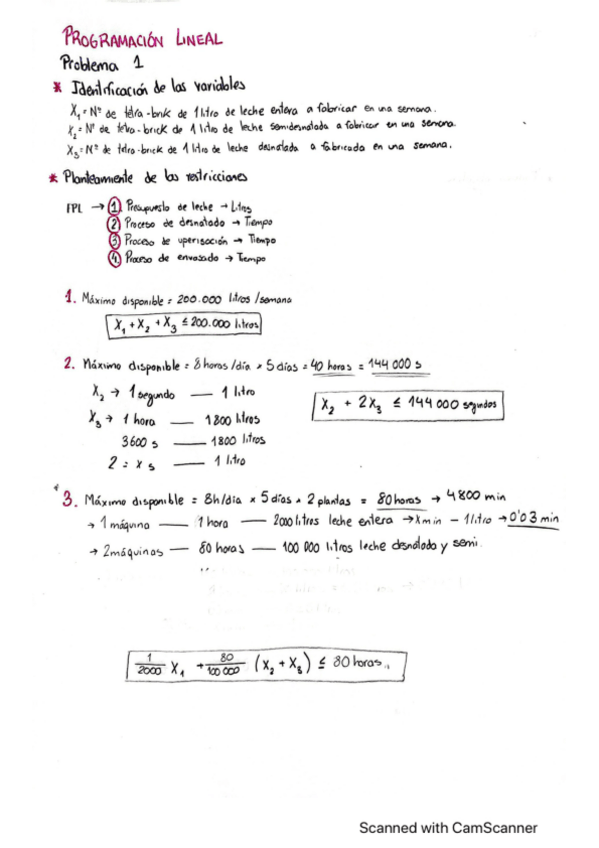 PROGRAMACIÓN LINEAL
Problema 1
* Identificación de las variables
X₁ = Nº de tetra-brik de 1 litro de leche entera a fabricar en una semana.
X₂ = Nº de tetra-brick de 1 litro de leche semidesnatada a fabricar en una semana.
X₃ = Nº de tetra-brick de 1 litro de leche desnatada a fabricada en una semana.
* Planteamiente de las restricciones
FPL → 1. Presupuesto de leche → Litros
2 Proceso de desnatado → Tiempo
3 Proceso de uperisación → Tiempo
4. Proceso de envasado → Tiempo
1. Máximo disponible = 200.000 litros/semana
X₁ + X₂ + X₃ ≤ 200.000 litros
2. Máximo disponible = 8 horas/día × 5 días = 40 horas = 144 000 s
X₂ → 1 segundo — 1 litro
X₂ + 2X₃ ≤ 144 000 segundos
X₃ → 1 hora — 1800 litros
3600 s — 1800 litros
2 = x s — 1 litro
* 3. Máximo disponible = 8h/día × 5 días × 2 plantas = 80 horas → 4800 min
→ 1 máquina — 1 hora — 2000 litros leche entera → x min - 1 litro → 0'03 min
→ 2 máquinas — 80 horas — 100 000 litros leche desnatada y semi.
1/2000 X₁ + 80/100 000 (X₂ + X₃) ≤ 80 horas.
Scanned with CamScanner